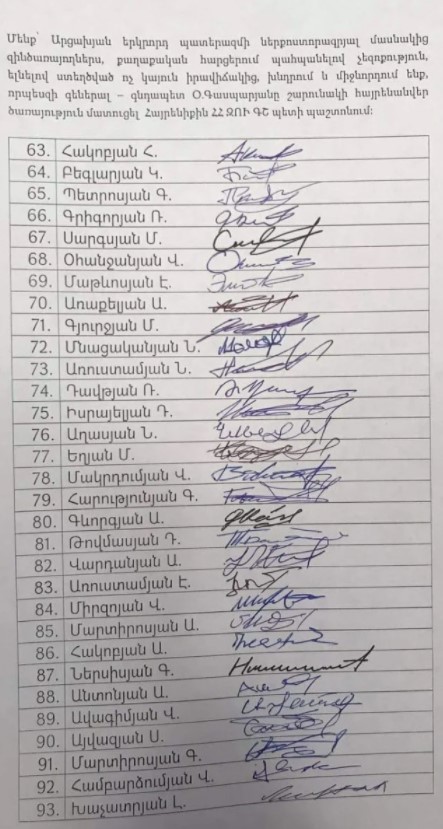 Մենք՝ Արցախյան երկրորդ պատերազմի ներքոստորագրյալ մասնակից
զինծառայողներս, քաղաքական հարցերում պահպանելով չեզոքություն,
ելնելով ստեղծված ոչ կայուն իրավիճակից, խնդրում և միջնորդում ենք,
որպեսզի գեներալ – գնդապետ Օ.Գասպարյանը շարունակի հայրենանվեր
ծառայություն մատուցել Հայրենիքին ՀՀ ԶՈՒ ԳՇ պետի պաշտոնում:
63. Հակոբյան Հ.
64. Բեգլարյան Կ.
65. Պետրոսյան Գ.
66. Գրիգորյան Ռ.
67. Սարգսյան Մ.
68. Օհանջանյան Վ.
69. Մաթևոսյան Է.
70. Առաքելյան Ա.
71. Գյուրջյան Մ.
72. Մնացականյան Ն.
73. Առուստամյան Ն.
74. Դավթյան Ռ.
75. Իսրայելյան Դ.
76. Աղասյան Ն.
77. Եղյան Մ.
78. Մակրդումյան Վ.
79. Հարությունյան Գ.
80. Գևորգյան Ա.
81. Թովմասյան Դ.
82. Վարդանյան Ա.
83. Առուստամյան Է.
84. Միրզոյան Վ.
85. Մարտիրոսյան Ա.
86. Հակոբյան Ա.
87. Ներսիսյան Գ.
88. Անտոնյան Ա.
89. Ավագիմյան Վ.
90. Այվազյան Ս.
91. Մարտիրոսյան Գ.
92. Համբարձումյան Վ.
93. Խաչատրյան Լ.